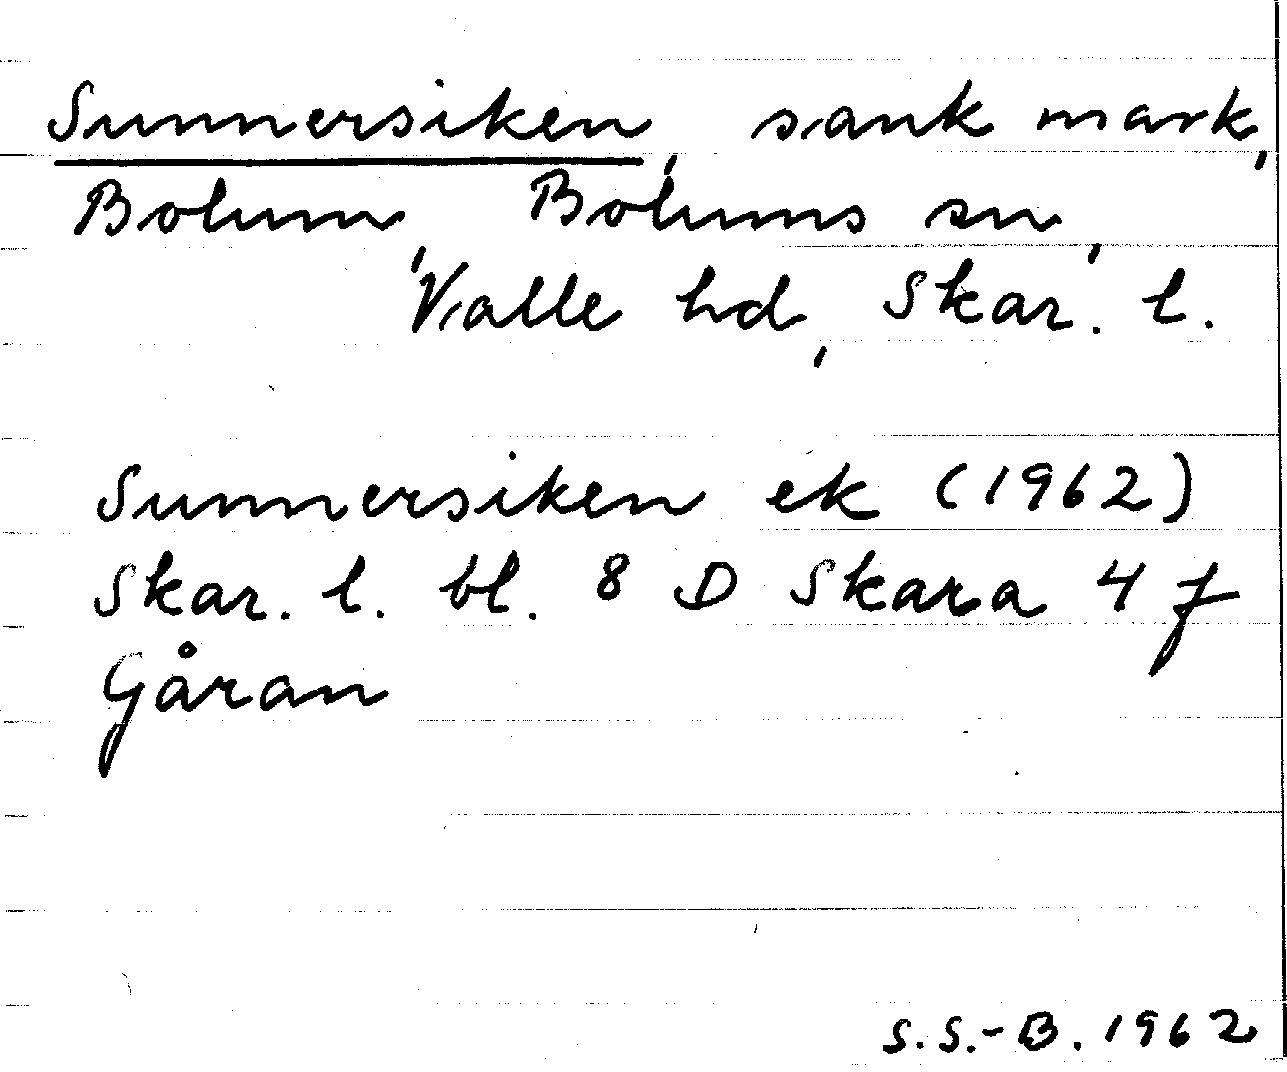 Sunnersiken, sank mark,
Bolum, Bolums sn,
Valle hd, Skar. l.
Sunnersiken ek (1962)
Skar. l. bl. 8 D Skara 4 f
Gåran
S.S.-B. 1962